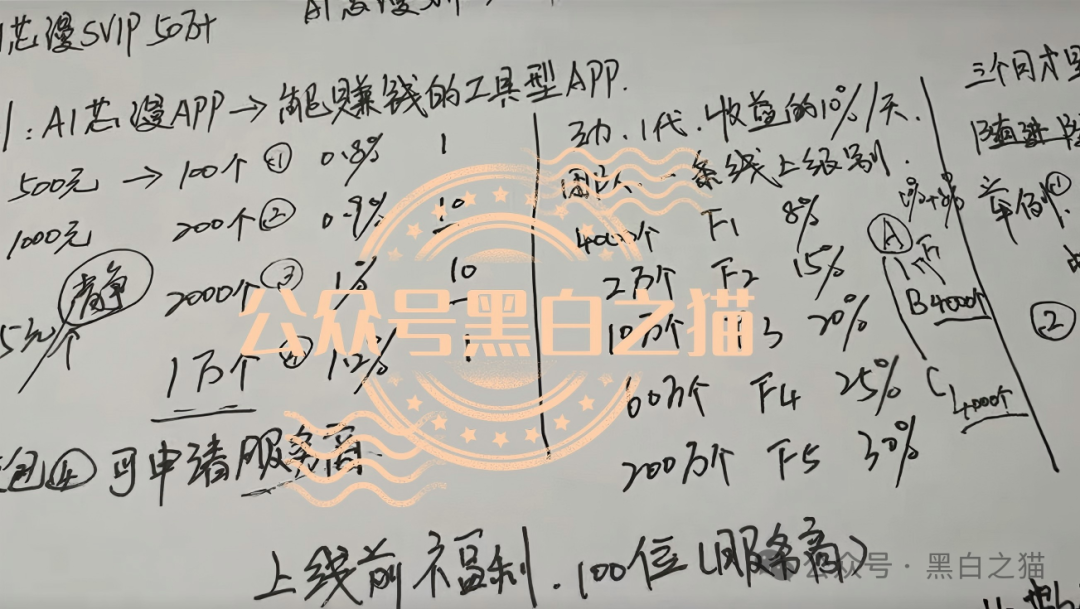 芯漫SVIP 50万+
1:AI芯漫APP→能赚钱的工具型APP.
500元→100个 ① 0.8% 1
1000元 200个 ② 0.9% 10
2000个 ③ 1% 10
5元/个
1万个 ④ 1.2%
包④可申请服务商
上线前福利.100位(服务商)
1代.收益的10%/天.
团队 一条线上级别.
4000个 F1 8%
2万个 F2 15%
10万个 3 20%
60万个 F4 25%
200万个 F5 30%
A
1万
B4000个
C4000个
三个月才
单价
②
公众号黑白之猫
公众号·黑白之猫